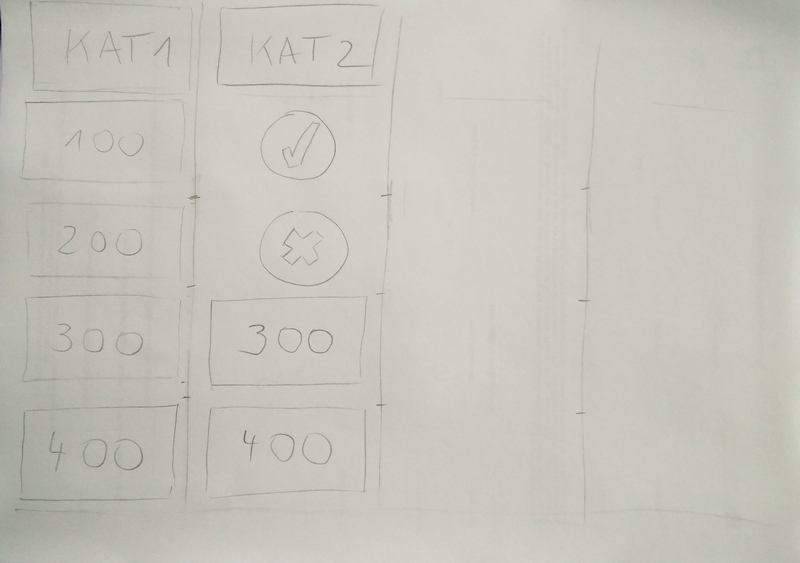 KAT1 KAT2
100
200
300 300
400 400